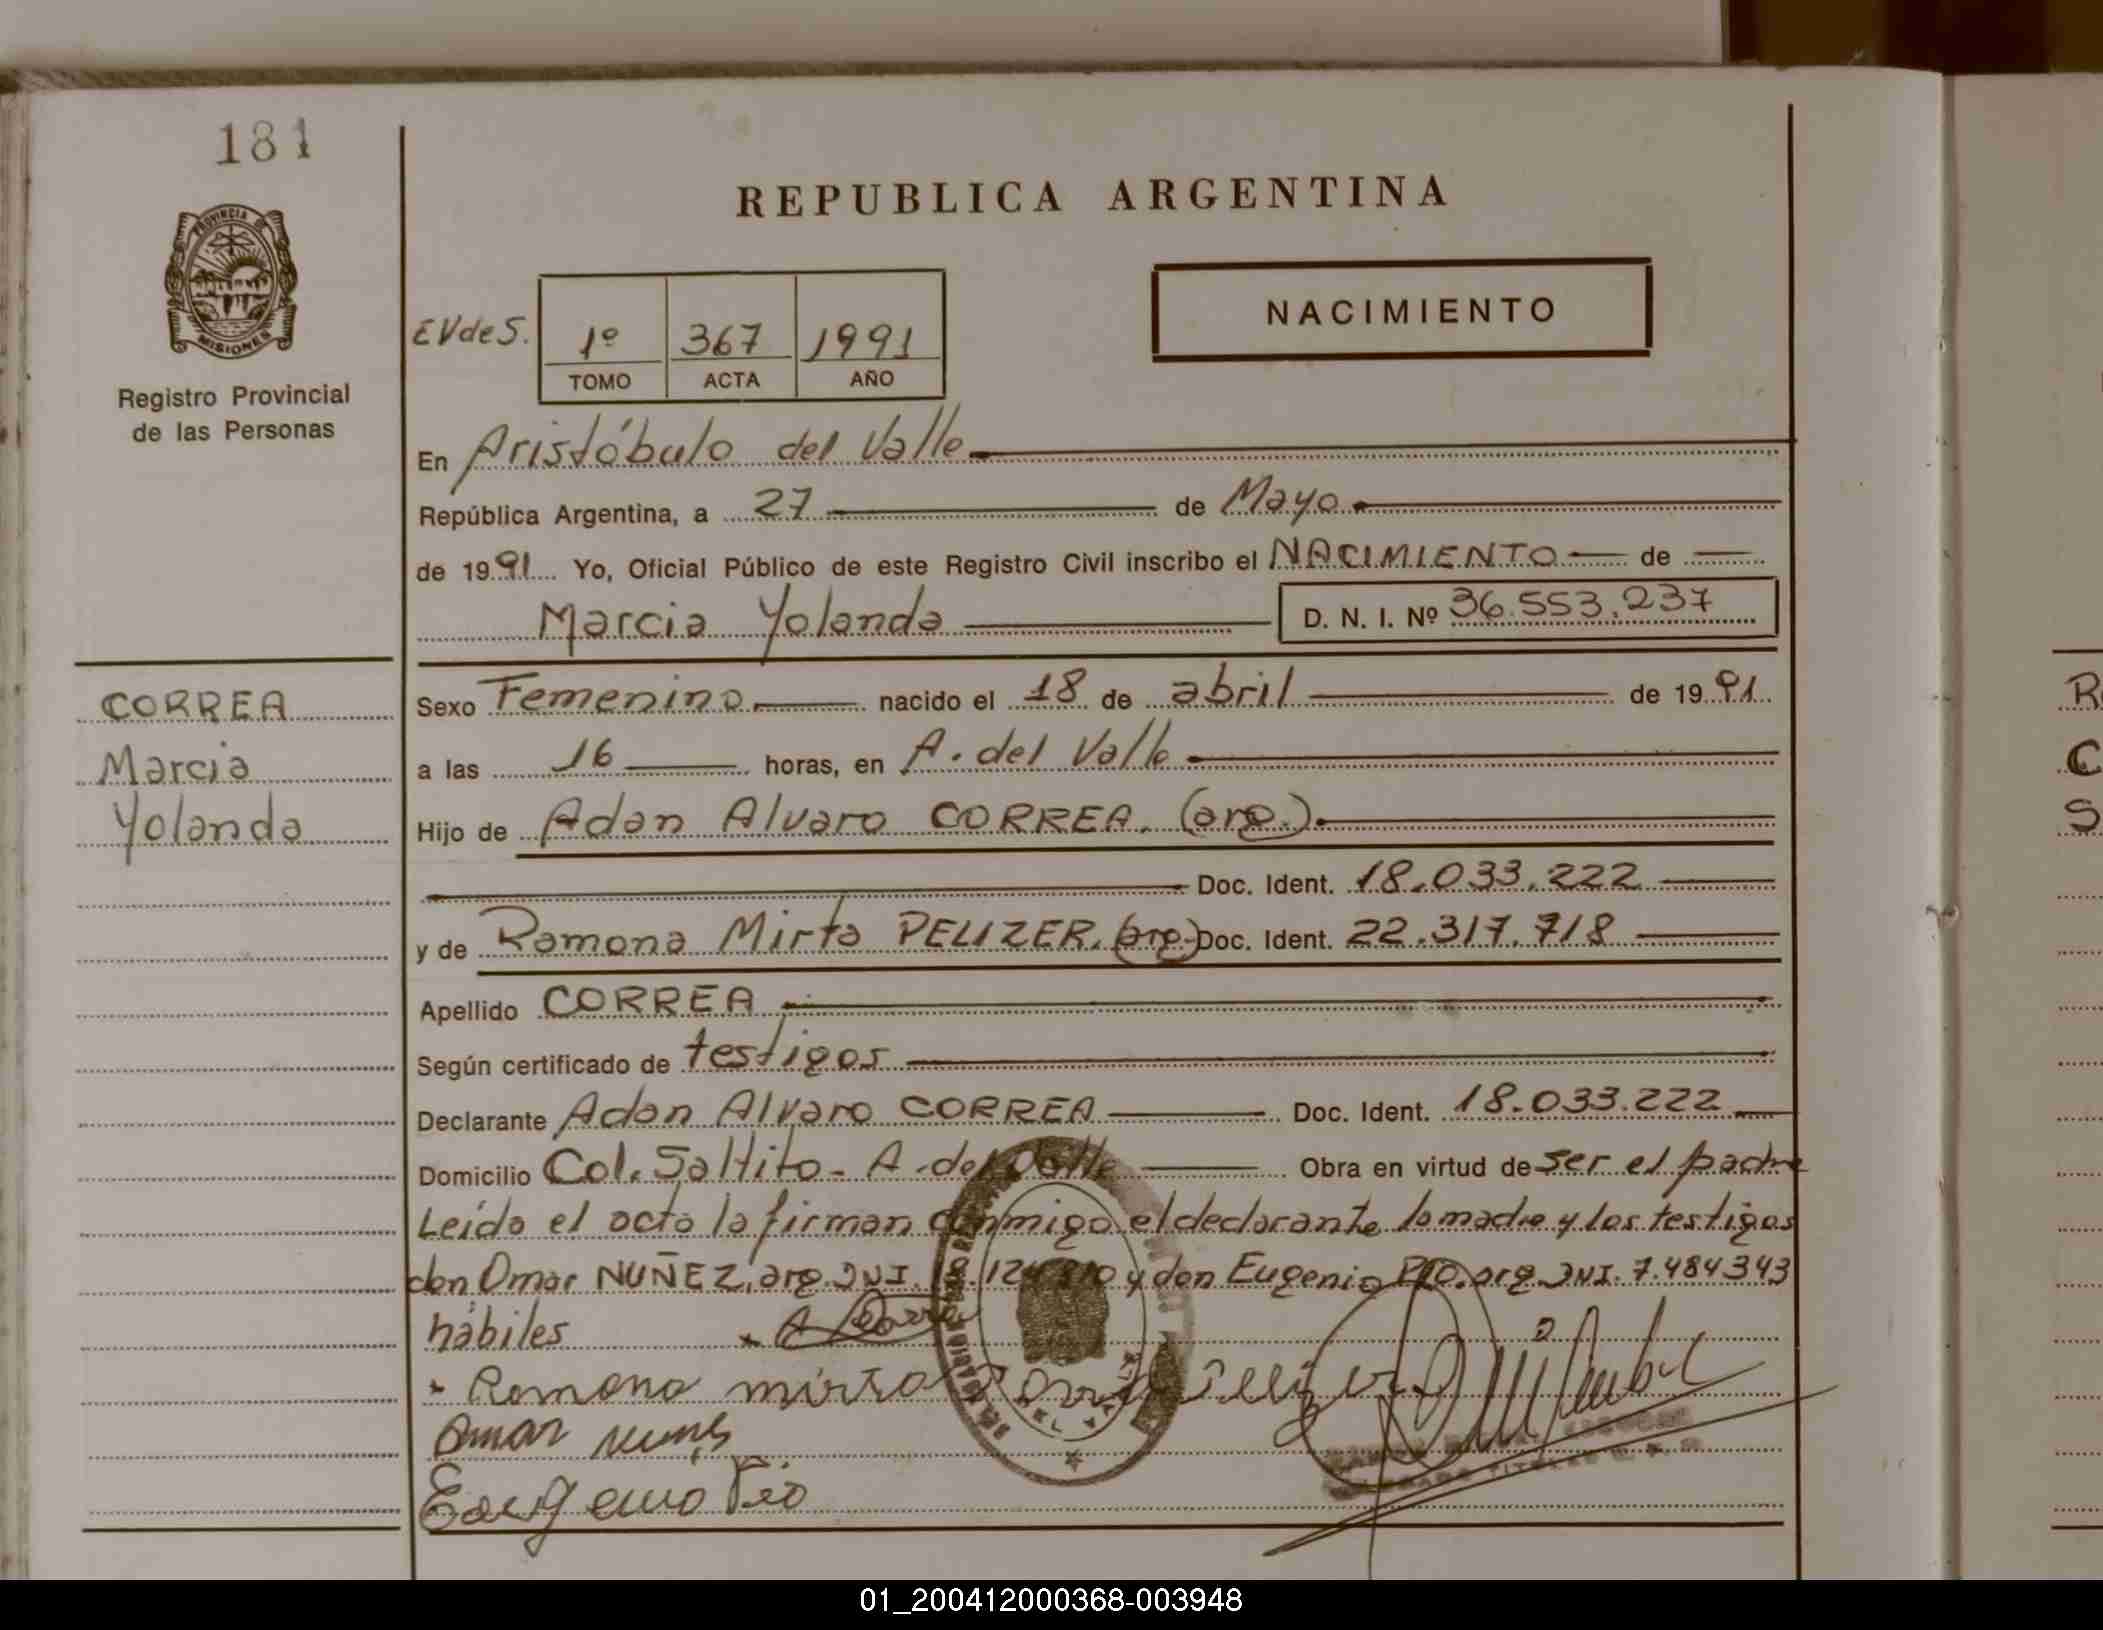 181
PROVINCIA DE
MISIONES
Registro Provincial
de las Personas
REPUBLICA ARGENTINA
NACIMIENTO
EVdeS. 1º 367 1991
TOMO ACTA AÑO
En Aristóbulo del Valle
República Argentina, a 27 de Mayo
de 1991 Yo, Oficial Público de este Registro Civil inscribo el NACIMIENTO de
Marcia Yolanda D. N. I. Nº 36.553.237
CORREA
Marcia
Yolanda
Sexo Femenino nacido el 18 de abril de 1991
a las 16 horas, en A. del Valle
Hijo de Adan Alvaro CORREA. (arg.)
Doc. Ident. 18.033.222
y de Ramona Mirta PELIZER. (arg.) Doc. Ident. 22.317.718
Apellido CORREA
Según certificado de testigos
Declarante Adan Alvaro CORREA Doc. Ident. 18.033.222
Domicilio Col. Saltito - A. del Valle Obra en virtud de ser el padre
Leída el acta la firman conmigo el declarante la madre y los testigos
don Omar NUÑEZ, arg. DNI. y don Eugenio PIO. arg. DNI. 7.484343
hábiles
Ramona mirta
Omar nuñes
Eaugenio Pio
01_200412000368-003948